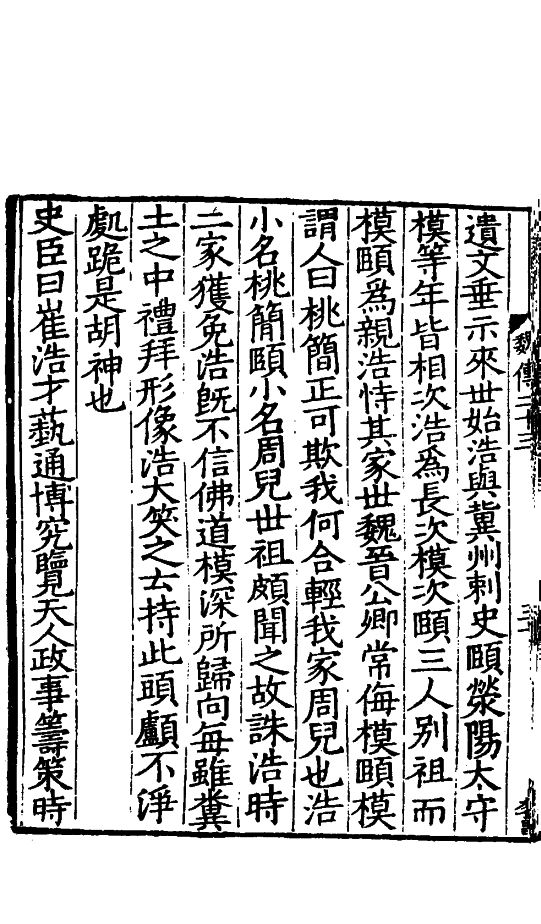 遺文垂示來世始浩與冀州刺史頤滎陽太守
模等年皆相次浩為長次模次頤三人別祖而
模頤為親浩恃其家世魏晉公卿常侮模頤模
謂人曰桃簡正可欺我何合輕我家周兒也浩
小名桃簡頤小名周兒世祖頗聞之故誅浩時
二家獲免浩既不信佛道模深所歸向每雖糞
土之中禮拜形像浩大笑之云持此頭顱不淨
處跪是胡神也
史臣曰崔浩才藝通博究覽天人政事籌策時
魏傳二十三